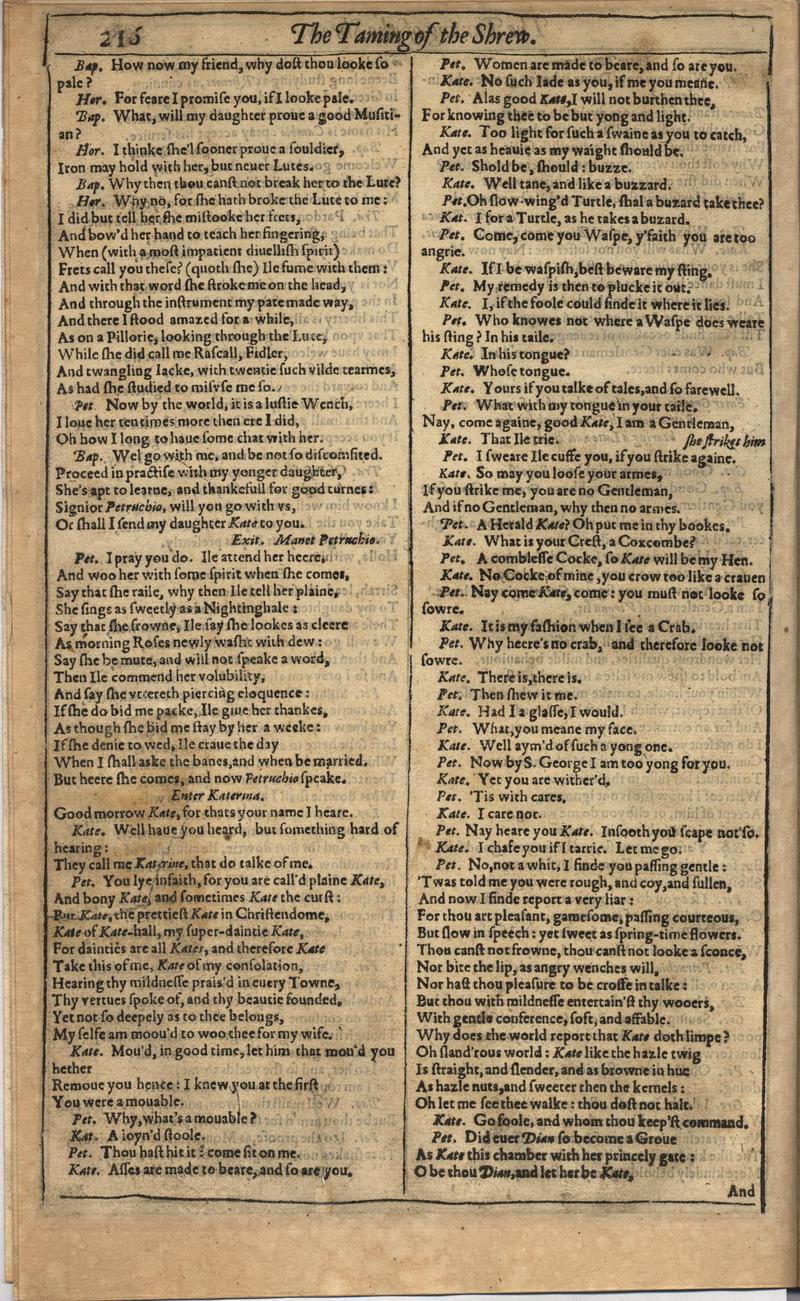 216
The Taming of the Shrew.
Bap. How now my friend, why doſt thou looke ſo
pale?
Hor. For feare I promiſe you, if I looke pale.
Bap. What, will my daughter proue a good Muſiti-
an?
Hor. I thinke ſhe'l ſooner proue a ſouldier,
Iron may hold with her, but neuer Lutes.
Bap. Why then thou canſt not break her to the Lute?
Hor. Why no, for ſhe hath broke the Lute to me:
I did but tell her ſhe miſtooke her frets,
And bow'd her hand to teach her fingering,
When (with a moſt impatient diuelliſh ſpirit)
Frets call you theſe? (quoth ſhe) Ile fume with them:
And with that word ſhe ſtroke me on the head,
And through the inſtrument my pate made way,
And there I ſtood amazed for a while,
As on a Pillorie, looking through the Lute,
While ſhe did call me Raſcall, Fidler,
And twangling Iacke, with twentie ſuch vilde tearmes,
As had ſhe ſtudied to miſvſe me ſo.
Pet. Now by the world, it is a luſtie Wench,
I loue her ten times more then ere I did,
Oh how I long to haue ſome chat with her.
Bap. Wel go with me, and be not ſo diſcomfited.
Proceed in practiſe with my yonger daughter,
She's apt to learne, and thankefull for good turnes:
Signior Petruchio, will you go with vs,
Or ſhall I ſend my daughter Kate to you.
Exit. Manet Petruchio.
Pet. I pray you do. Ile attend her heere,
And woo her with ſome ſpirit when ſhe comes,
Say that ſhe raile, why then Ile tell her plaine,
She ſings as ſweetly as a Nightinghale:
Say that ſhe frowne, Ile ſay ſhe lookes as cleere
As morning Roſes newly waſht with dew:
Say ſhe be mute, and will not ſpeake a word,
Then Ile commend her volubility,
And ſay ſhe vttereth piercing eloquence:
If ſhe do bid me packe, Ile giue her thankes,
As though ſhe bid me ſtay by her a weeke:
If ſhe denie to wed, Ile craue the day
When I ſhall aske the banes, and when be married.
But heere ſhe comes, and now Petruchio ſpeake.
Enter Katerina.
Good morrow Kate, for thats your name I heare.
Kate. Well haue you heard, but ſomething hard of
hearing:
They call me Katerine, that do talke of me.
Pet. You lye infaith, for you are call'd plaine Kate,
And bony Kate, and ſometimes Kate the curſt:
But Kate, the prettieſt Kate in Chriſtendome,
Kate of Kate-hall, my ſuper-daintie Kate,
For dainties are all Kates, and therefore Kate
Take this of me, Kate of my conſolation,
Hearing thy mildneſſe prais'd in euery Towne,
Thy vertues ſpoke of, and thy beautie ſounded,
Yet not ſo deepely as to thee belongs,
My ſelfe am moou'd to woo thee for my wife.
Kate. Mou'd, in good time, let him that mou'd you
hether
Remoue you hence: I knew you at the firſt
You were a mouable.
Pet. Why, what's a mouable?
Kat. A ioyn'd ſtoole.
Pet. Thou haſt hit it: come ſit on me.
Kate. Aſſes are made to beare, and ſo are you.
Pet. Women are made to beare, and ſo are you.
Kate. No ſuch Iade as you, if me you meane.
Pet. Alas good Kate, I will not burthen thee,
For knowing thee to be but yong and light.
Kate. Too light for ſuch a ſwaine as you to catch,
And yet as heauie as my waight ſhould be.
Pet. Shold be, ſhould: buzze.
Kate. Well tane, and like a buzzard.
Pet. Oh ſlow-wing'd Turtle, ſhal a buzard take thee?
Kat. I for a Turtle, as he takes a buzard.
Pet. Come, come you Waſpe, y'faith you are too
angrie.
Kate. If I be waſpiſh, beſt beware my ſting.
Pet. My remedy is then to plucke it out.
Kate. I, if the foole could finde it where it lies.
Pet. Who knowes not where a Waſpe does weare
his ſting? In his taile.
Kate. In his tongue?
Pet. Whoſe tongue.
Kate. Yours if you talke of tales, and ſo farewell.
Pet. What with my tongue in your taile.
Nay, come againe, good Kate, I am a Gentleman,
Kate. That Ile trie. ſhe ſtrikes him
Pet. I ſweare Ile cuffe you, if you ſtrike againe.
Kate. So may you looſe your armes,
If you ſtrike me, you are no Gentleman,
And if no Gentleman, why then no armes.
Pet. A Herald Kate? Oh put me in thy bookes.
Kate. What is your Creſt, a Coxcombe?
Pet. A combleſſe Cocke, ſo Kate will be my Hen.
Kate. No Cocke of mine, you crow too like a crauen
Pet. Nay come Kate, come: you muſt not looke ſo
ſowre.
Kate. It is my faſhion when I ſee a Crab.
Pet. Why heere's no crab, and therefore looke not
ſowre.
Kate. There is, there is.
Pet. Then ſhew it me.
Kate. Had I a glaſſe, I would.
Pet. What, you meane my face.
Kate. Well aym'd of ſuch a yong one.
Pet. Now by S. George I am too yong for you.
Kate. Yet you are wither'd.
Pet. 'Tis with cares.
Kate. I care not.
Pet. Nay heare you Kate. Inſooth you ſcape not ſo.
Kate. I chafe you if I tarrie. Let me go.
Pet. No, not a whit, I finde you paſſing gentle:
'Twas told me you were rough, and coy, and ſullen,
And now I finde report a very liar:
For thou art pleaſant, gameſome, paſſing courteous,
But ſlow in ſpeech: yet ſweet as ſpring-time flowers.
Thou canſt not frowne, thou canſt not looke a ſconce,
Nor bite the lip, as angry wenches will,
Nor haſt thou pleaſure to be croſſe in talke:
But thou with mildneſſe entertain'ſt thy wooers,
With gentle conference, ſoft, and affable.
Why does the world report that Kate doth limpe?
Oh ſland'rous world: Kate like the hazle twig
Is ſtraight, and ſlender, and as browne in hue
As hazle nuts, and ſweeter then the kernels:
Oh let me ſee thee walke: thou doſt not halt.
Kate. Go foole, and whom thou keep'ſt command.
Pet. Did euer Dian ſo become a Groue
As Kate this chamber with her princely gate:
O be thou Dian, and let her be Kate,
And